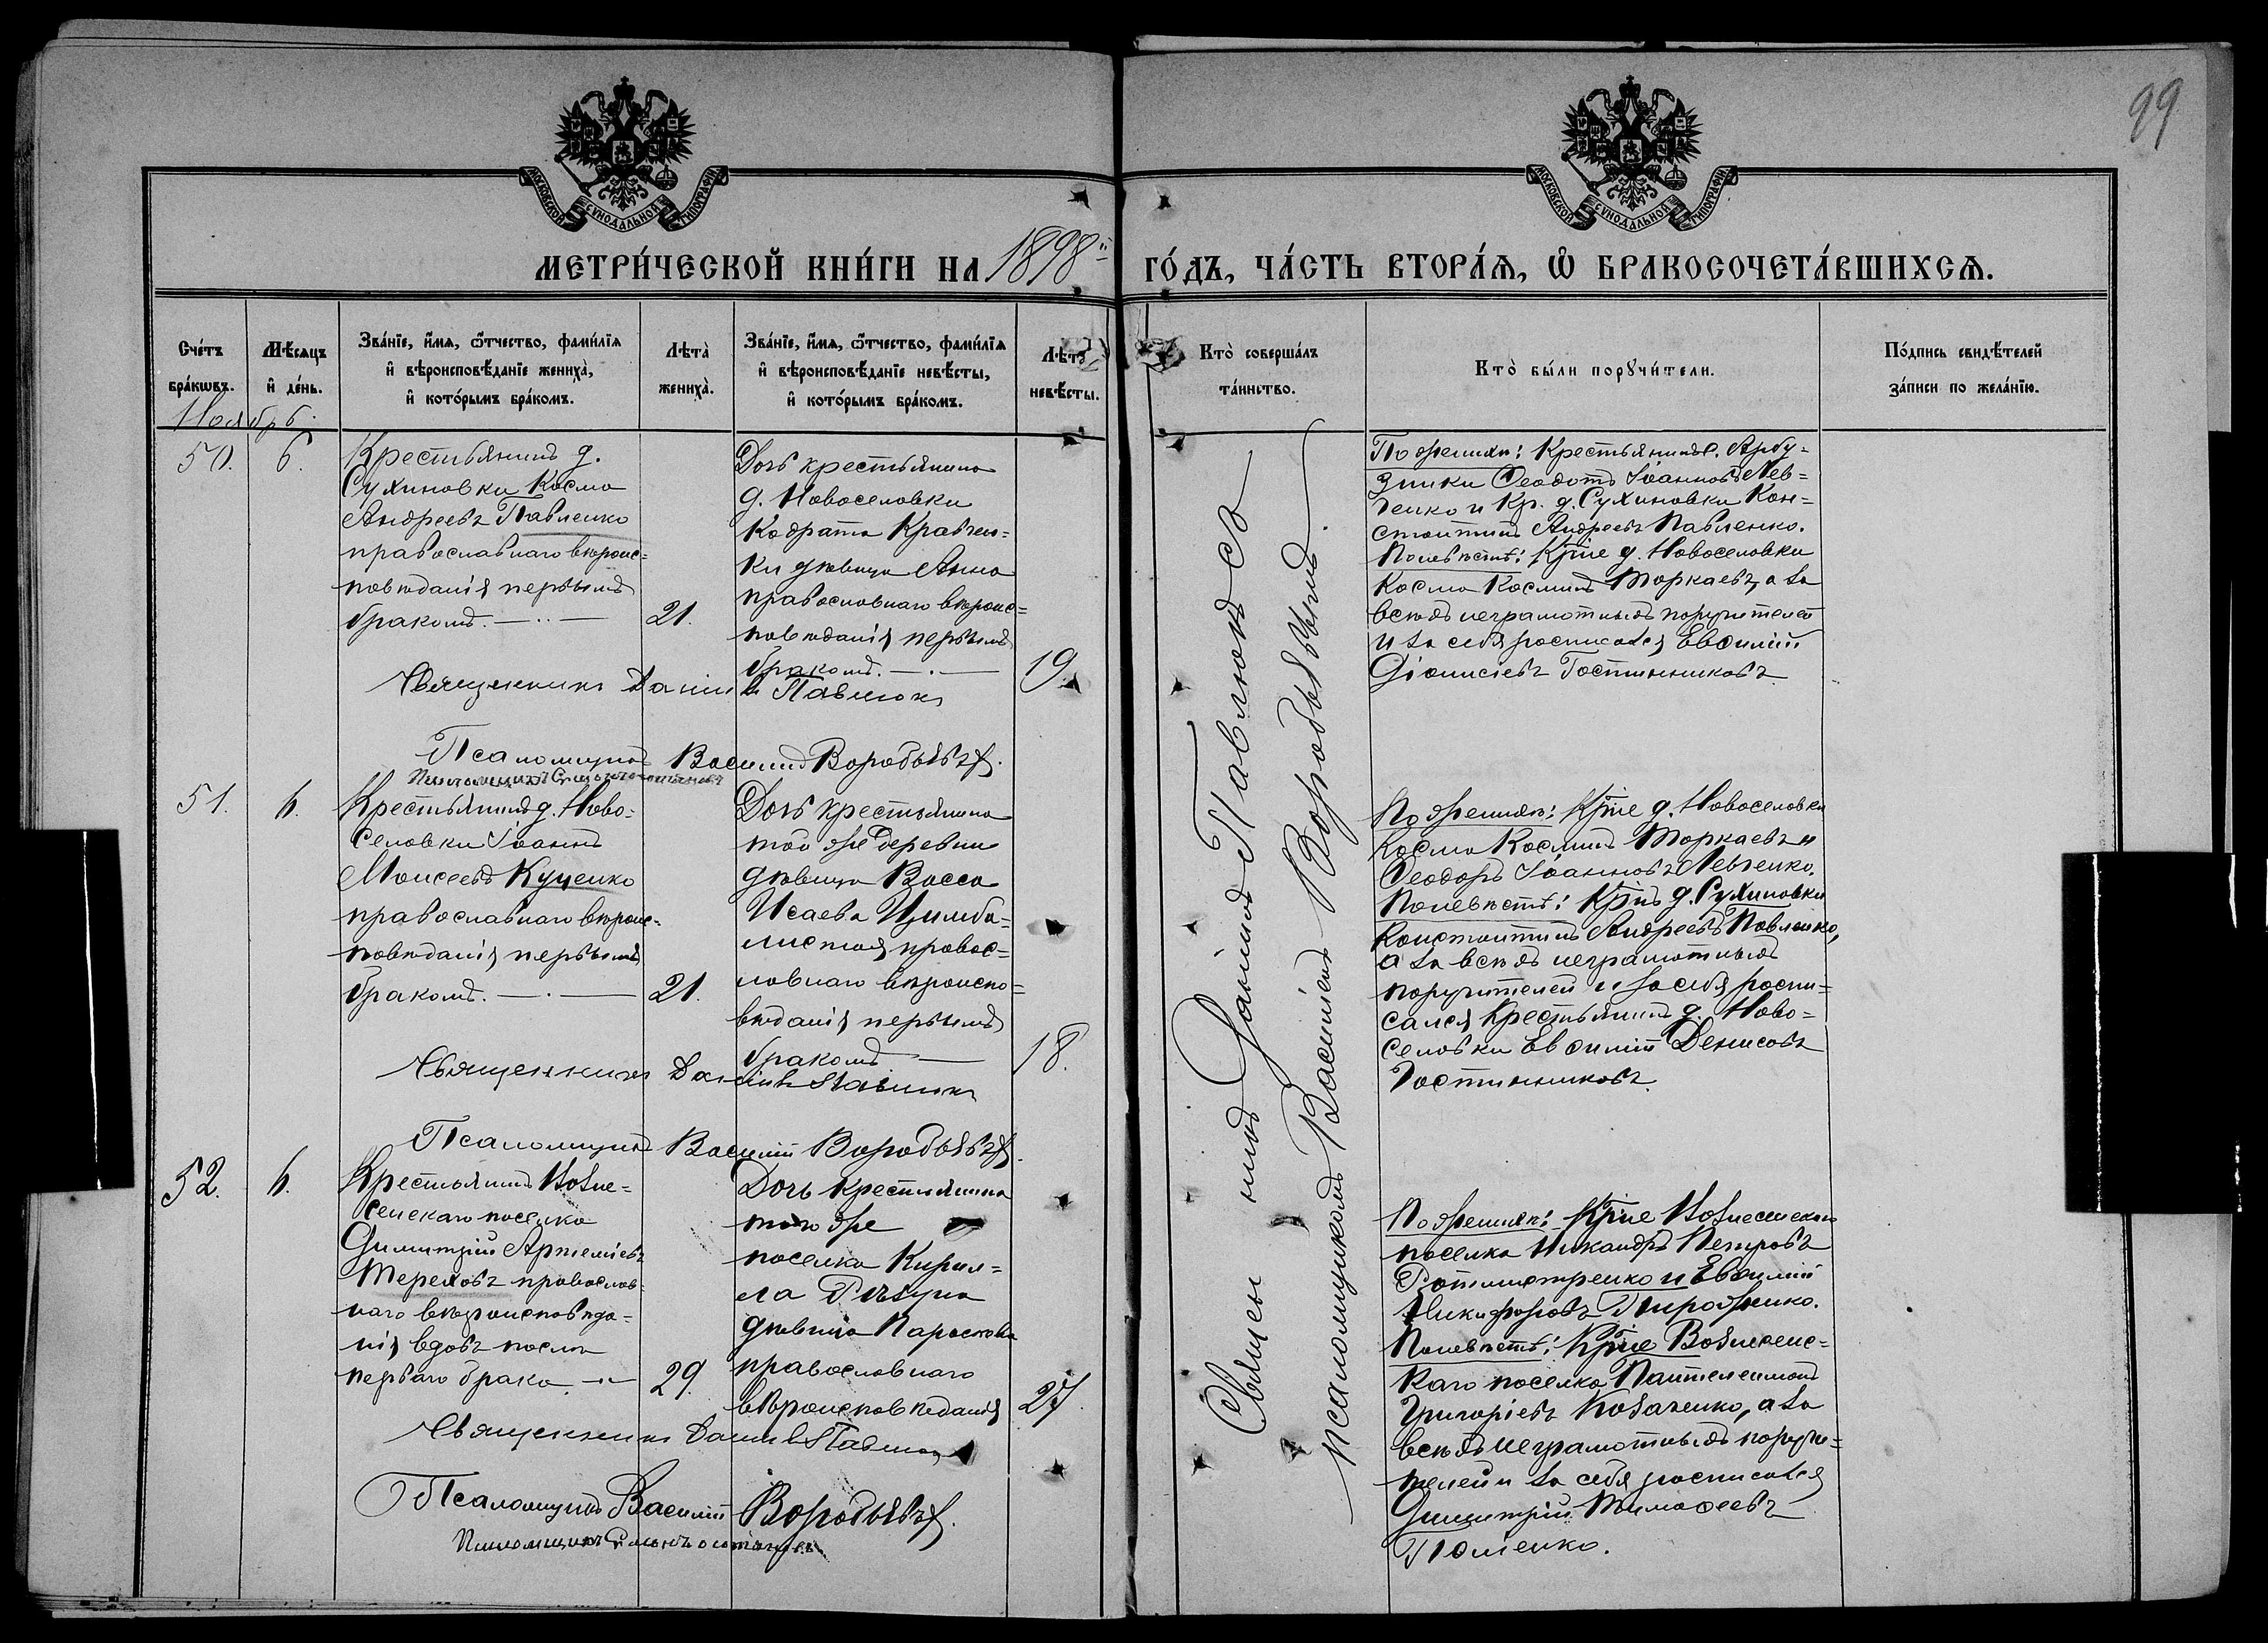 99
МОСКОВСКОЙ СѴНОДАЛЬНОЙ ТИПОГРАФІИ
МОСКОВСКОЙ СѴНОДАЛЬНОЙ ТИПОГРАФІИ
МЕТРИ́ЧЕСКОЙ КНИ́ГИ НА 1898й ГО́ДЪ, ЧА́СТЬ ВТОРА́Ѧ, Ѽ БРАКОСОЧЕТА́ВШИХСѦ.
Сче́тъ бра́кѡвъ.
Мѣ́сяцъ и҆ де́нь.
Зва́нїе, и҆́мѧ, ѻ҆́тчество, фами́лїѧ
и҆ вѣроисповѣ́данїе жениха̀,
и҆ кото́рымъ бра́комъ.
Лѣта̀ жениха̀.
Зва́нїе, и҆́мѧ, ѻ҆́тчество, фами́лїѧ
и҆ вѣроисповѣ́данїе невѣ́сты,
и҆ кото́рымъ бра́комъ.
Лѣта̀ невѣ́сты.
Кто̀ соверша́лъ
та́инство.
Кто̀ бы́ли порꙋчи́тели.
По́дпись свидѣ́телей
за́писи по жела́нїю.
Ноябрь.
50. 6.
Крестьянинъ д.
Сухиновки Косма
Андреевъ Павленко
православнаго вѣроис=
повѣданія первымъ
бракомъ. 21.
Дочь крестьянина
д. Новоселовки
Кодрата Кравчен=
ки дѣвица Анна
православнаго вѣроис=
повѣданія первымъ
бракомъ. 19.
Священникъ Даніилъ Павлюкъ
Псаломщикъ Василій Воробьевъ.
По женихѣ: Крестьянинъ с. Арбу=
зинки Ѳеодотъ Іоанновъ Лев=
ченко и Кр. д. Сухиновки Кон=
стантинъ Андреевъ Павленко.
По невѣстѣ: Кр͠не д. Новоселовки
Косма Косминъ Торкаевъ, а за
всѣхъ неграмотныхъ поручителей
и за себя росписался Евѳимій
Діонисіевъ Гостинниковъ
51. 6.
Крестьянинъ д. Ново=
селовки Іоаннъ
Моисеевъ Куценко
православнаго вѣроис=
повѣданія первымъ
бракомъ. 21.
Дочь крестьянина
той же деревни
дѣвица Васса
Исаева Цимба=
листая правос=
лавнаго вѣроиспо=
вѣданія первымъ
бракомъ 18.
Священникъ Даніилъ Павлюкъ
Псаломщикъ Василій Воробьевъ.
По женихѣ: Кр͠не д. Новоселовки
Косма Косминъ Торкаевъ и
Ѳеодоръ Іоанновъ Левченко.
По невѣстѣ: Кр͠нъ д. Сухиновки
Константинъ Андреевъ Павленко,
а за всѣхъ неграмотныхъ
поручителей и за себя роспи=
сался Крестьянинъ д. Ново=
селовки Евѳимій Денисовъ
Гостинниковъ.
52. 6.
Крестьянинъ Возне=
сенскаго поселка
Димитрій Артеміевъ
Тереховъ православ=
наго вѣроисповѣда=
нія вдовъ послѣ
перваго брака. 29.
Дочь крестьянина
того же
поселка Кирил=
ла
дѣвица Параскева
православнаго
вѣроисповѣданія 27.
Священникъ Даніилъ Павлюкъ
Псаломщикъ Василій Воробьевъ.
По женихѣ: Кр͠не Вознесенскаго
поселка Никандръ Петровъ
Ротмистренко и Евѳимій
Никифоровъ Пироженко.
По невѣстѣ: Кр͠не Вознесенс=
каго поселка Пантелеимонъ
Григоріевъ Козаченко, а за
всѣхъ неграмотныхъ поручи=
телей и за себя росписался
Димитрій Тимоѳеевъ
Священникъ Даніилъ Павлюкъ съ
псаломщикомъ Василіемъ Воробьевымъ.